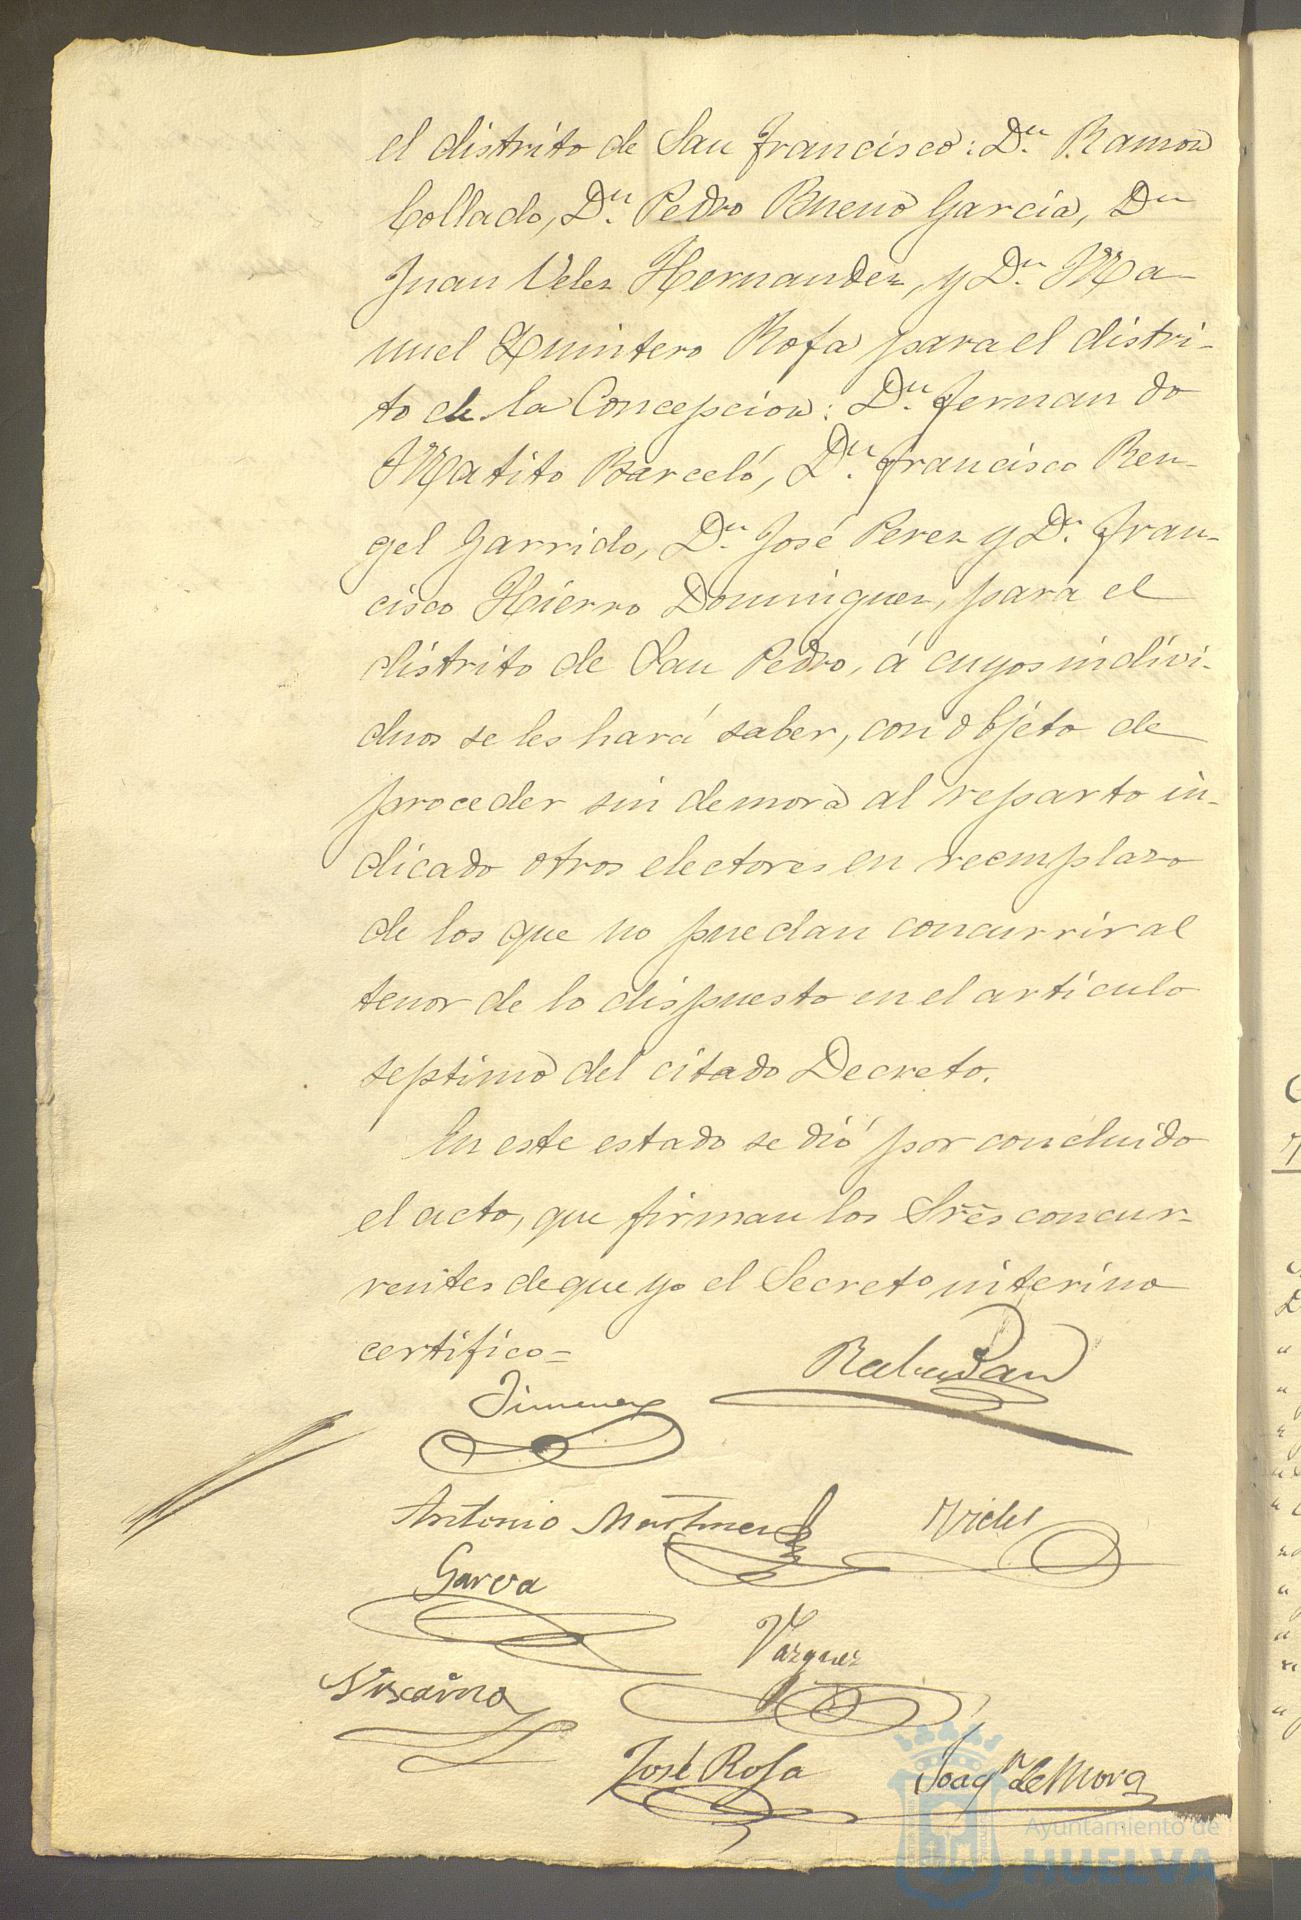 el distrito de San Francisco: Dn. Ramon
Collado, Dn. Pedro Bueno Garcia, Dn
Juan Velez Hernandez, y Dn. Ma
nuel Quintero Rofa para el distri-
to de la Concepcion: Dn. Fernando
Matito Barceló, Dn. Francisco Ren-
gel Garrido, Dn. José Perez y Dn. Fran-
cisco Hierro Dominguez, para el
distrito de San Pedro, á cuyos indivi-
duos se les hará saber, con objeto de
proceder sin demora al reparto in-
dicado otros electores en reemplazo
de los que no puedan concurrir al
tenor de lo dispuesto en el articulo
septimo del citado Decreto.
En este estado se dió por concluido
el acto, que firman los Sres concur-
rentes de que yo el Secreto interino
certifico=
Rabadan
Jimenez
Antonio Martinez
Garcia
Vazquez
Viscaino
José Rofa Joaqn de Mora
Ayuntamiento de
HUELVA